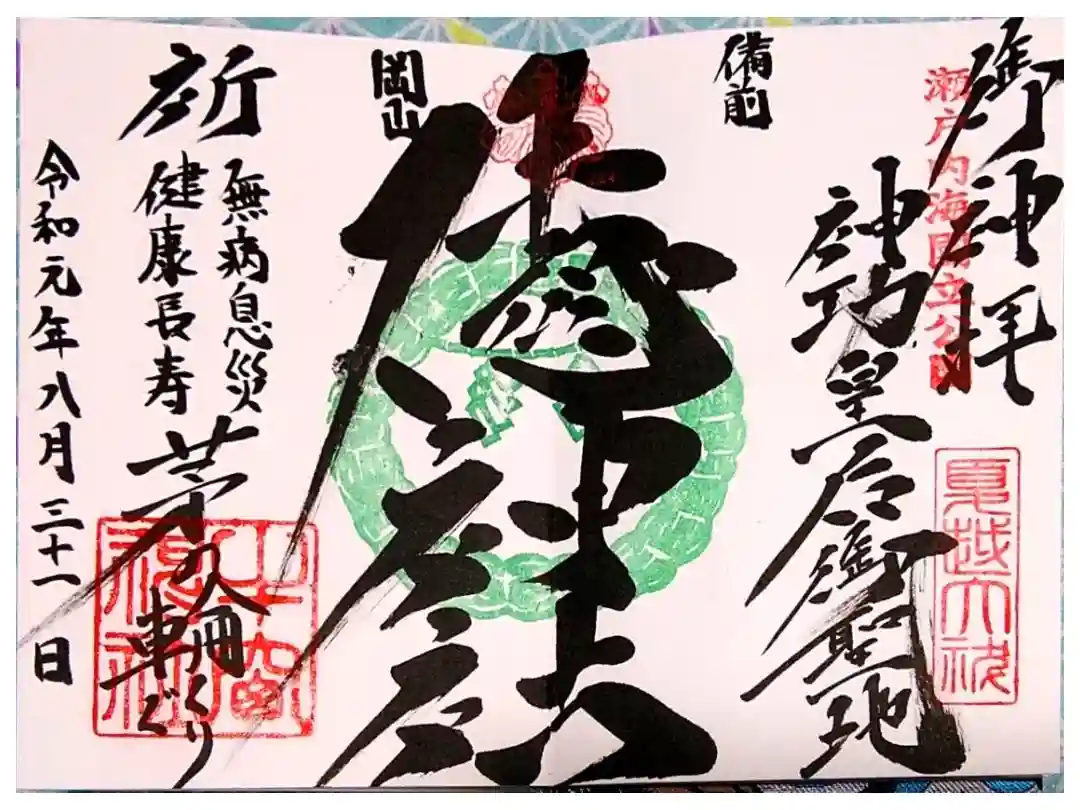 御神拝
瀬戸内海国立公園
神功皇后御聖地
夏越大祓
備前
岡山
祈
無病息災
健康長寿
茅の輪くぐり
令和元年八月三十一日